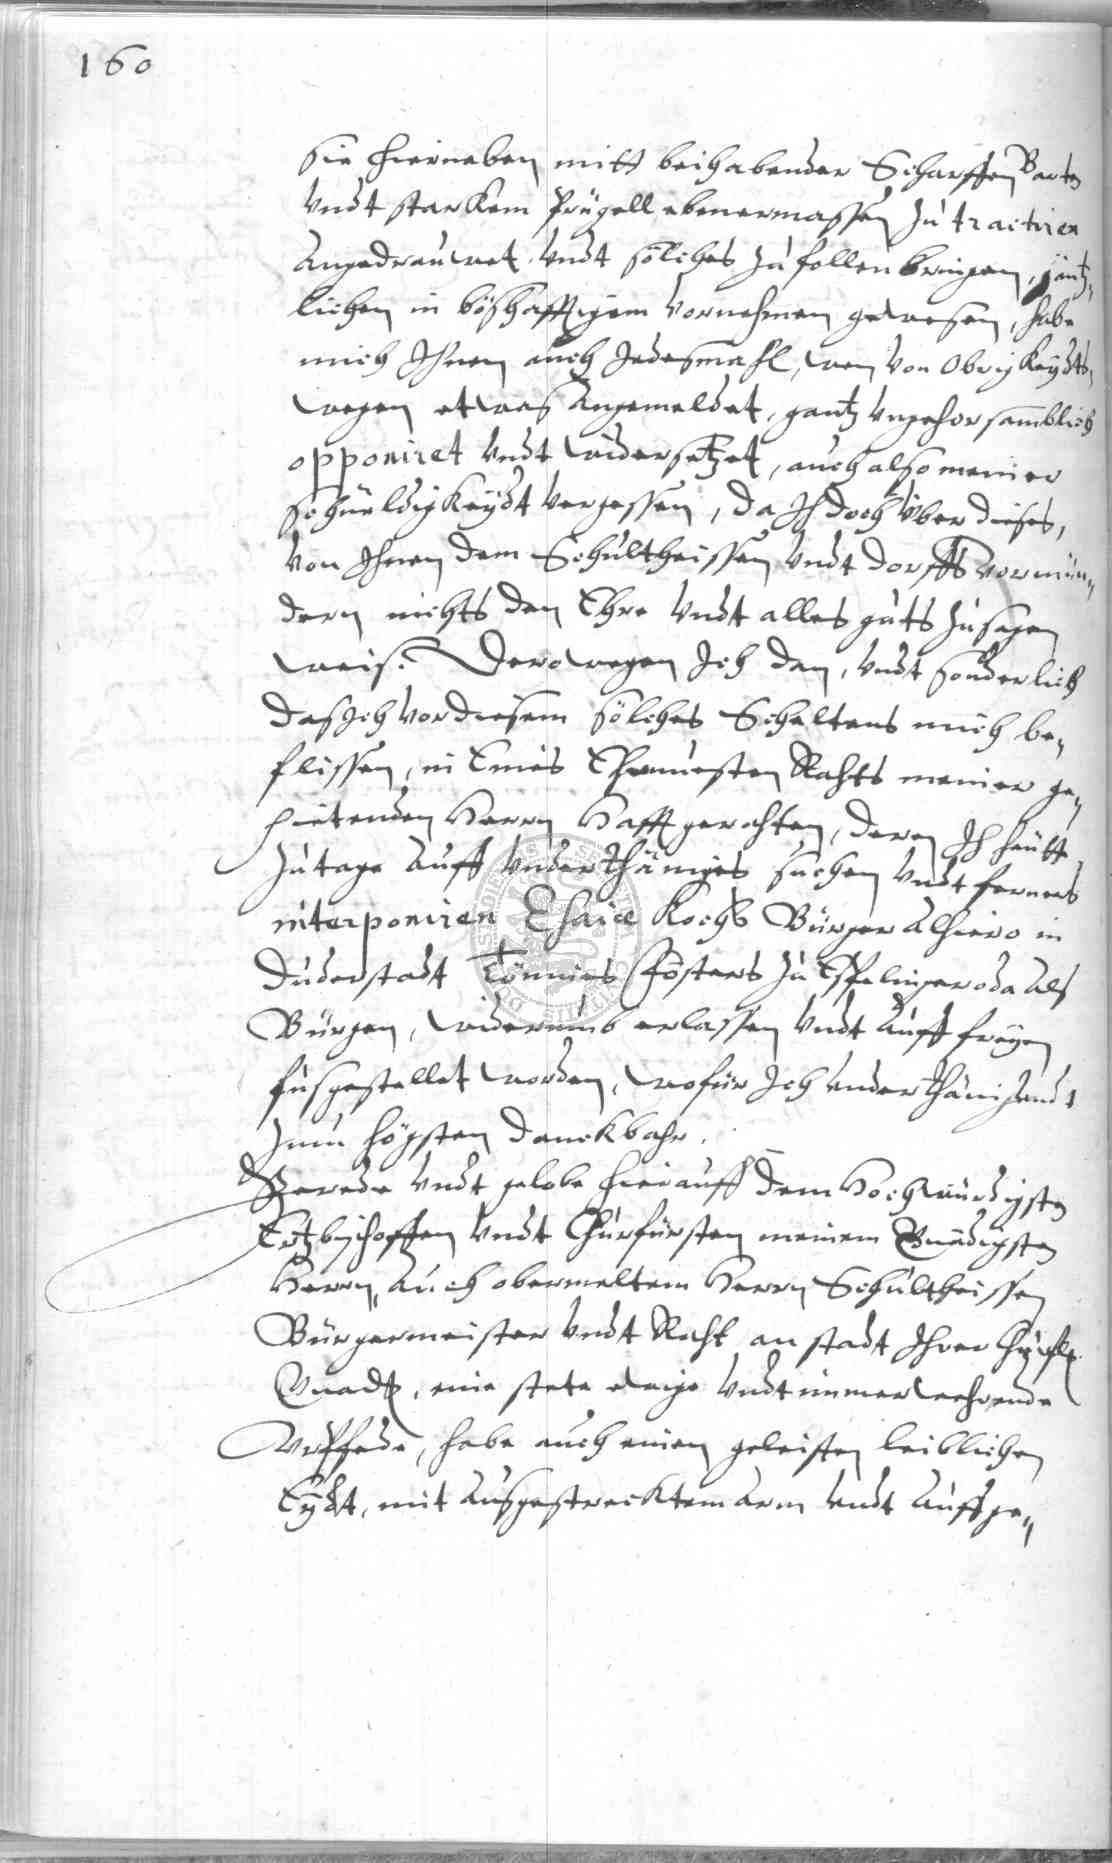 160
sie hierneben mitt beihabender Scharffen Barten
Vndt starkem Prügell ebenermassen zu tractiren
angedrauwet Vndt sölches zu follenbringen, gäntz„
lichen in böshafftigem Vornehmen gewesen, habe
mich Ihnen auch Jedesmahl, wen von Obrigkeydts„
wegen etwas angemeldet, gantz Vngehorsamblich
opponiret Vndt widersetzet, auch also meiner
schuldigkeydt Vergessen, da Ich doch über dieses,
Von Ihnen dem Schultheissen Vndt dorffsVormün„
dern nichts den Ehre Vndt alles guts zusagen
weis. Derowegen Ich dan, Vndt sonderlich
das Ich Vor diesem sölches Scheltens mich be„
flissen, in Eines Ehrnuesten Rahts meiner ge„
pietenden Herrn Hafft gerahten, deren Ich heutt
zutage auff Vnderthäniges suchen Vndt ferners
interponiren Esaiæ Kochs Bürger alhiero in
Duderstadt Tönnies Fösters zu Esplingeroda als
Bürgen, widerumb erlassen Vndt auff freyen
fusgestellet worden, wofür Ich vnderthänig vndt
zum högsten danckbahr.
Gerede Vndt gelobe hierauff dem Hochwürdigsten
Ertzbischoffen Vndt Churfürsten meinem Gnädigsten
Herrn, auch obermeltem Herrn Schultheissen
Bürgermeister Vndt Raht an stadt Ihrer Churfl.
Gnadt, eine stete ewige Vndt immerwehrende
Vrffede, habe auch einen geleisten leiblichen
Eydt, mit ausgestrecktem arm Vndt auffge„